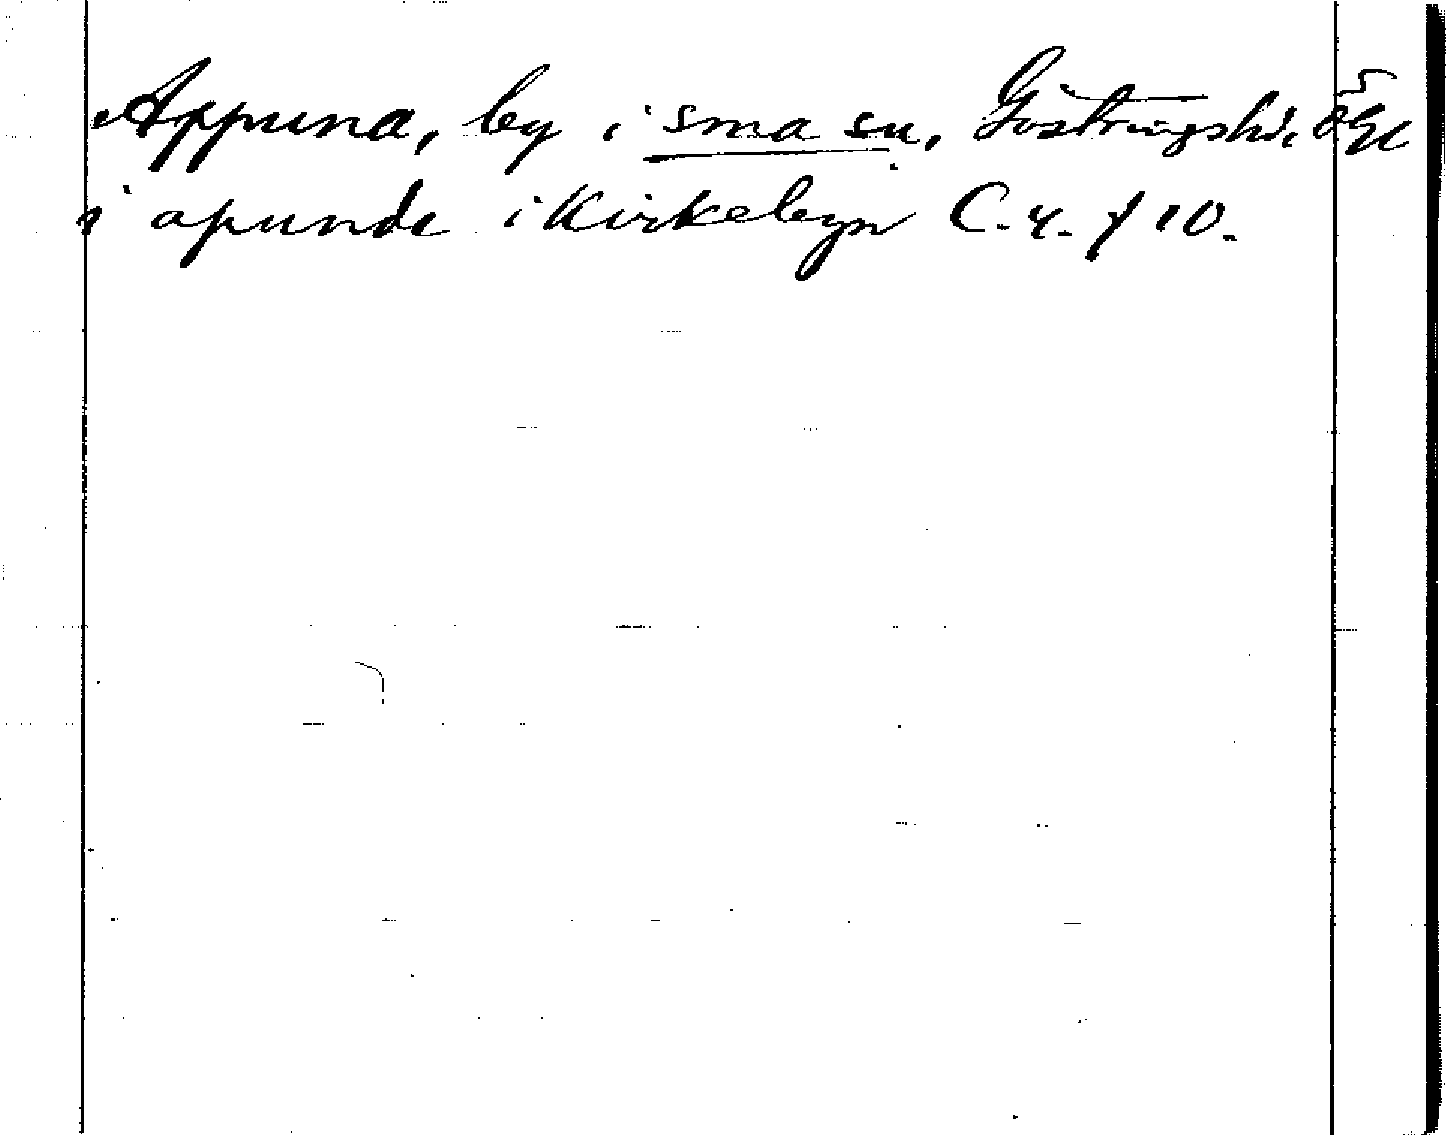 Appuna, by i sma sn, Göstringshd, Ögl
i apunde i Kirkebyn C. 4. f 10.